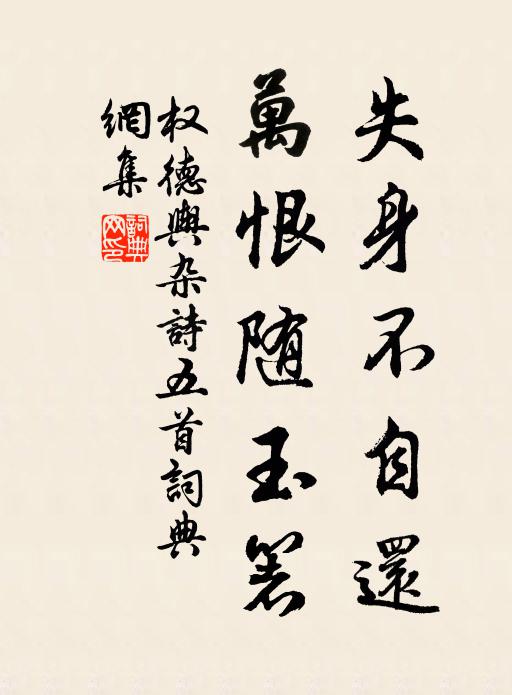 失身不自還
萬恨随玉箸
权德輿杂詩五首詞典
網集
詞典
网印